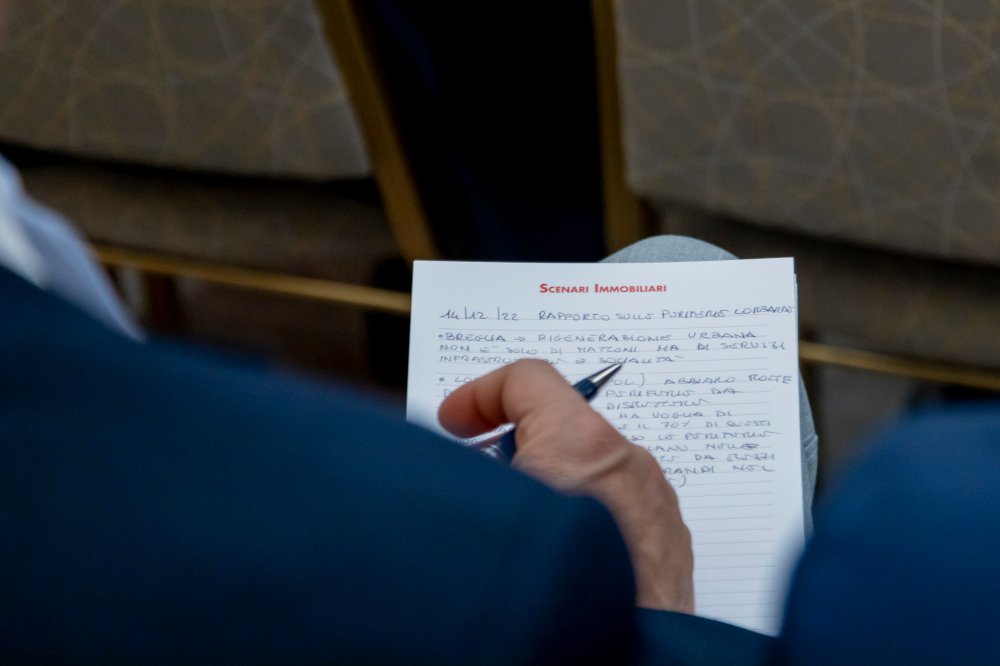 SCENARI IMMOBILIARI
14/12/22 RAPPORTO SULLE PERIFERIE LOMBARDE
• BREGLIA → RIGENERAZIONE URBANA
NON È SOLO DI MATTONI MA DI SERVIZI
INFRASTRUTTURE E SOCIALITÀ
• LO OL) ABBIAMO MOLTE
PERIFERIE DA
HA VOGLIA DI
IL 70% DI QUESTI
SO LE PERIFERIE
DA
RANDI NEL